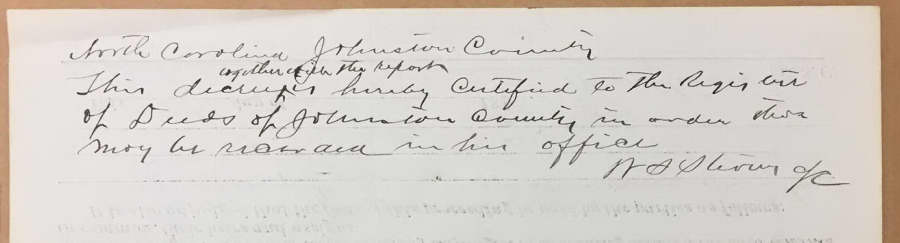 North Carolina Johnston County
together with the report
This decree is hereby Certified to the Register
of Deeds of Johnston County in order that
may be recorded in his office
W S Stevens